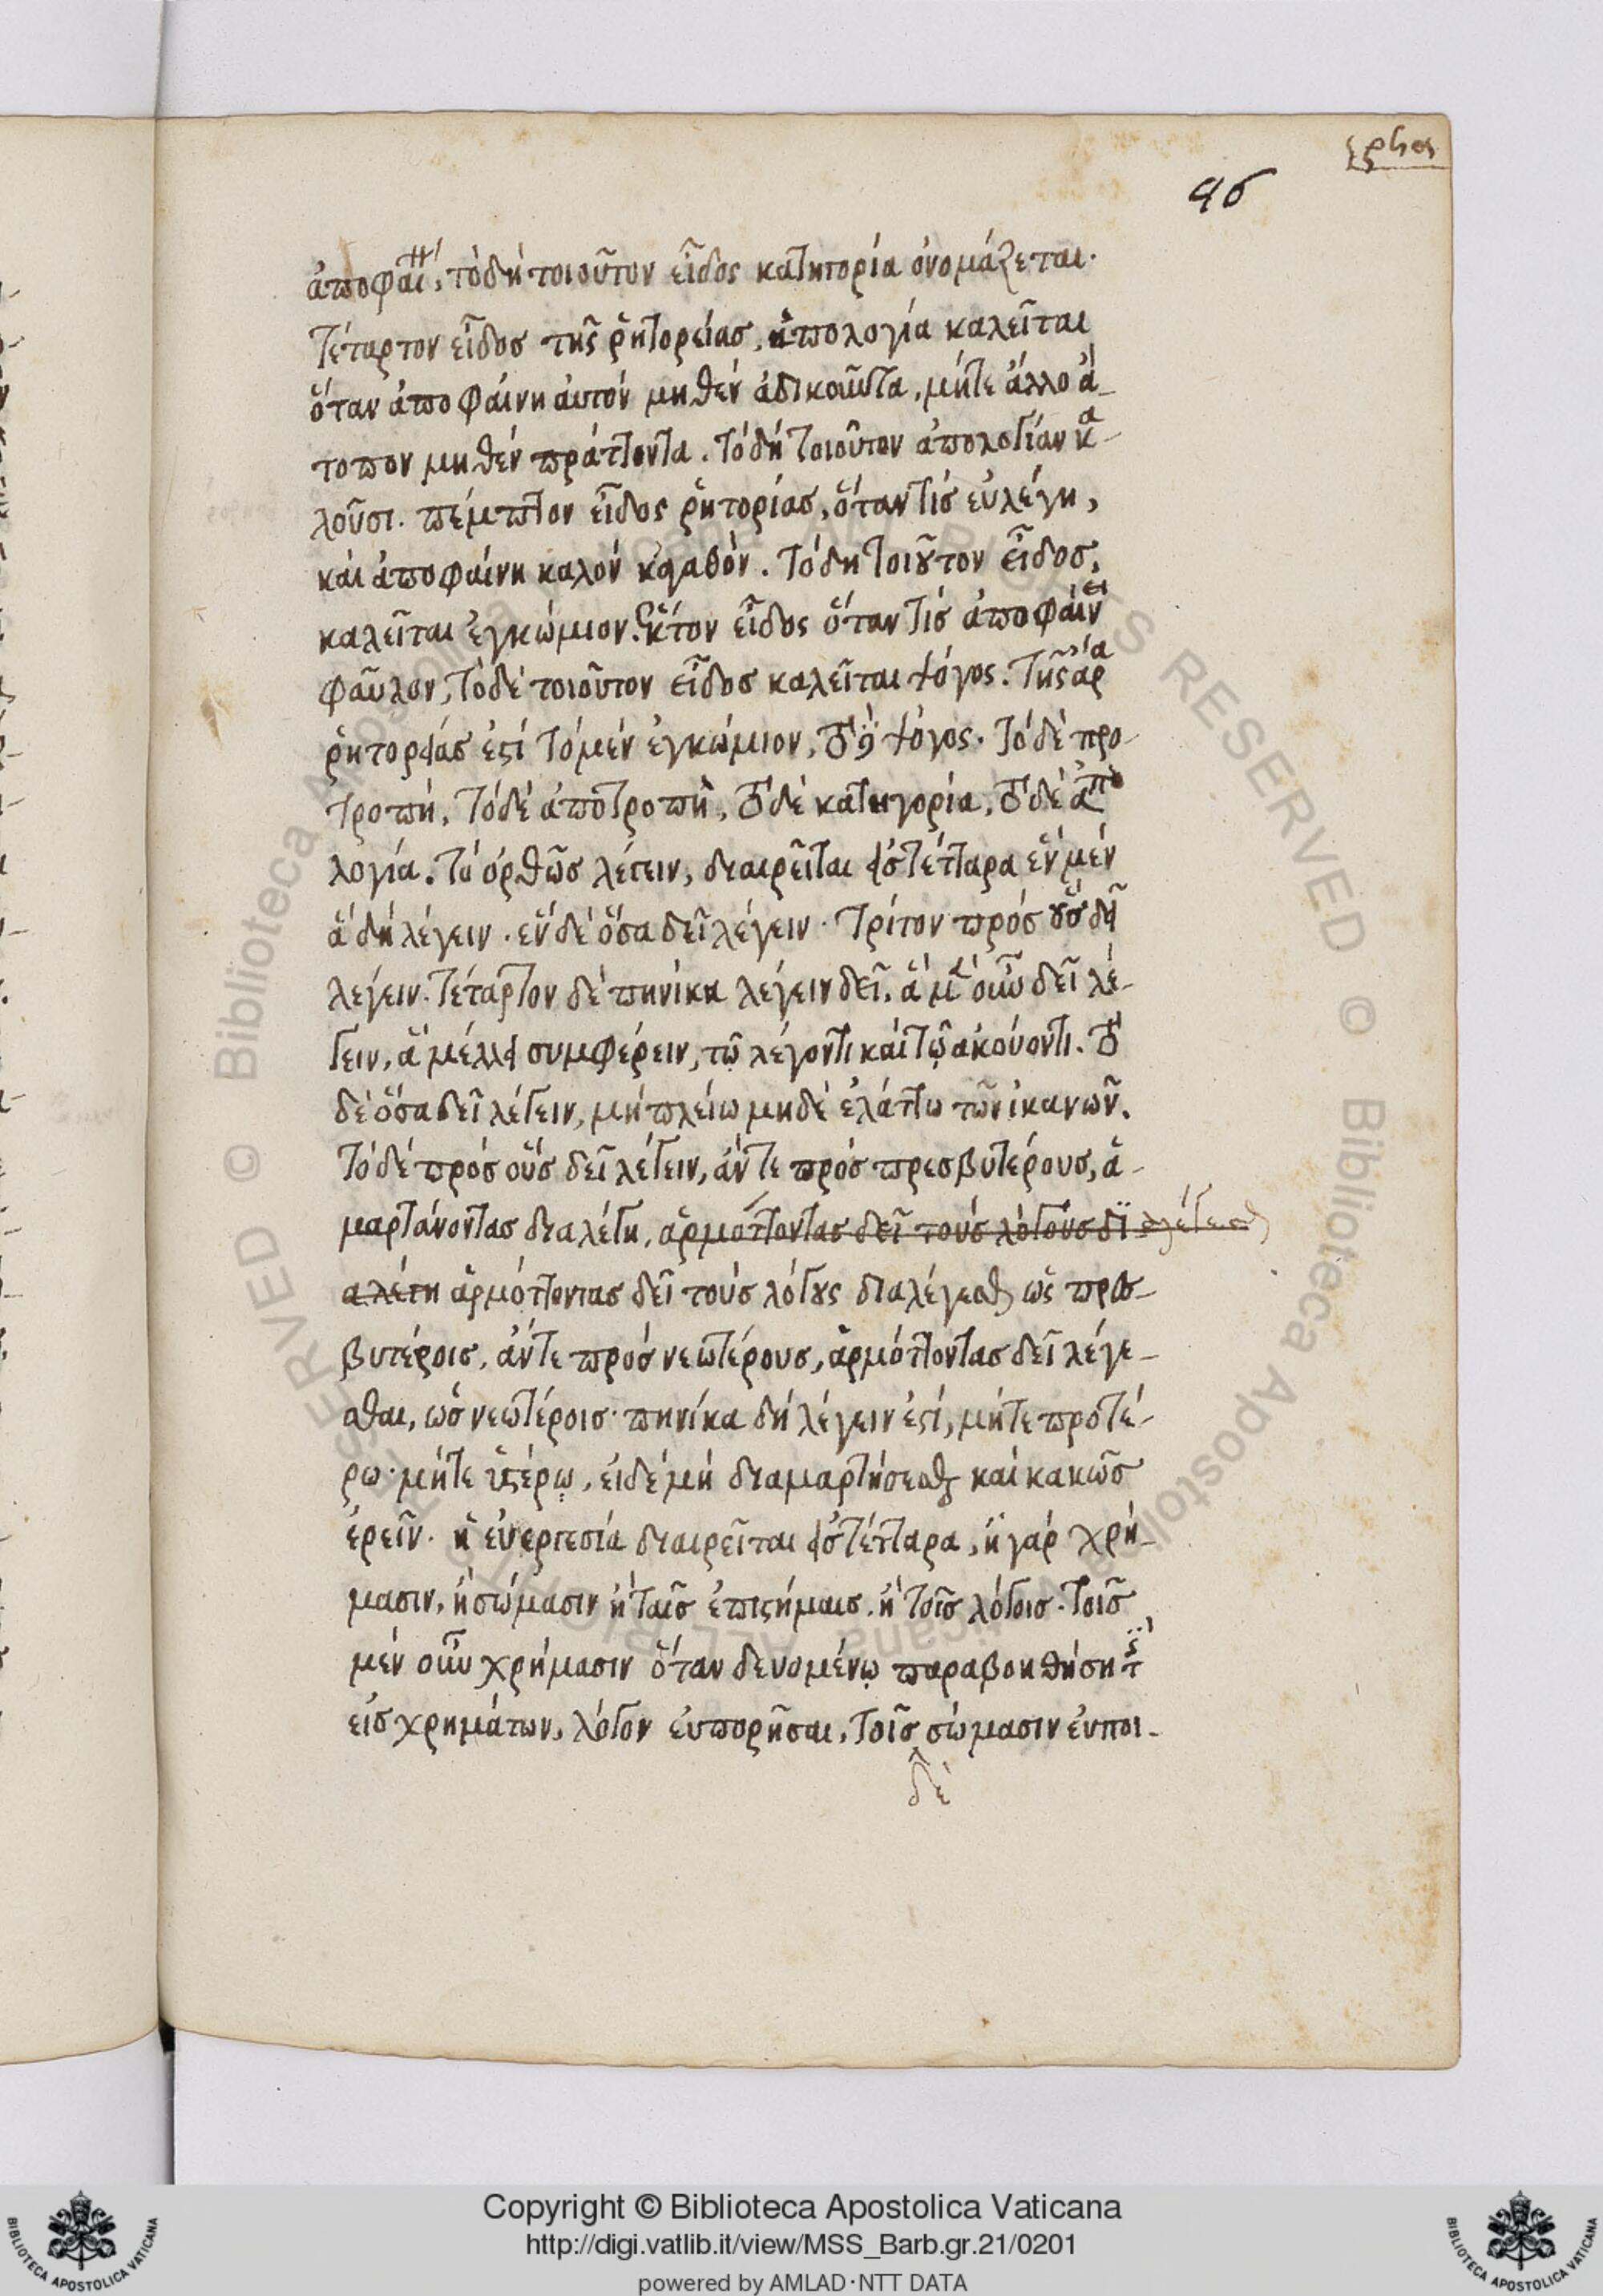 96
ἀποφαίνη, τὸ δὴ τοιοῦτον εἶδος κατηγορία ὀνομάζεται.
Τέταρτον εἶδοσ τῆς ῥητορείασ, ἀπολογία καλεῖται
ὅταν ἀποφαίνη αὑτόν μηθέν ἀδικοῦντα, μήτε ἄλλο ἄ-
τοπον μηθέν πράττοντα. τό δή τοιοῦτον ἀπολογίαν κα-
λοῦσι. πέμπτον εἶδος ῥητορίασ, ὅταν τίσ εὐλέγη,
καὶ ἀποφαίνη καλόν κἀγαθόν. τό δη τοιοῦτον εἶδοσ,
καλεῖται ἐγκώμιον. ἕκτον εἶδος ὅταν τίσ ἀποφαίνει
φαῦλον, τὸ δέ τοιοῦτον εἶδοσ καλεῖται ψόγος. Τῆς ἄρα
ῥητορείάσ ἐστί τό μέν ἐγκώμιον, τὸ δὲ ψόγος. τό δέ προ-
τροπή, τό δέ ἀποτροπή, τὸ δέ κατηγορία, τὸ δέ ἀπο
λογία. τό ὀρθῶσ λέγειν, διαιρεῖται εἰσ τέτταρα ἕν μέν
ἅ δή λέγειν. ἕν δέ ὅσα δεῖ λέγειν. τρίτον πρόσ οὕσ δῆ
λέγειν. τέταρτον δέ πηνίκα λέγειν δεῖ. ἅ μὲν οὖν δεῖ λέ-
γειν, ἅ μέλλει συμφέρειν, τῷ λέγοντι καί τῷ ἀκούοντι. τὸ
δέ ὅσα δεῖ λέγειν, μή πλείω μηδέ ἐλάττω τῶν ἱκανῶν.
τό δέ πρόσ οὕσ δεῖ λέγειν, ἄν τε πρόσ πρεσβυτέρουσ, ἁ-
μαρτάνοντασ διαλέγη, ἁρμόττοντασ δεῖ τούσ λόγουσ δϊ αλέγεσθαι
αλέγη ἁρμόττοντασ δεῖ τούσ λόγους διαλέγεσθαι ὡς πρεσ-
βυτέροισ, ἄν τε πρόσ νεωτέρουσ, ἁρμόττοντασ δεῖ λέγε-
σθαι, ὡσ νεωτέροισ. πηνίκα δή λέγειν ἐστί, μήτε προτέ-
ρω. μήτε ὑστέρῳ, εἰ δέ μή διαμαρτήσεσθαι καί κακῶσ
ἐρεῖν. ἡ εὐεργεσία διαιρεῖται εἰσ τέτταρα, ἤ γάρ χρή-
μασιν, ἤ σώμασιν ἤ ταῖσ ἐπιστήμαισ. ἤ τοῖσ λόγοισ. τοῖσ
μέν οὖν χρήμασιν ὅταν δευομένῳ παραβοηθήση τίς
εἰσ χρημάτων, λόγον εὐπορῆσαι, τοῖσ σώμασιν ἐν ποι-
δὲ
Copyright © Biblioteca Apostolica Vaticana
http://digi.vatlib.it/view/MSS_Barb.gr.21/0201
powered by AMLAD·NTT DATA